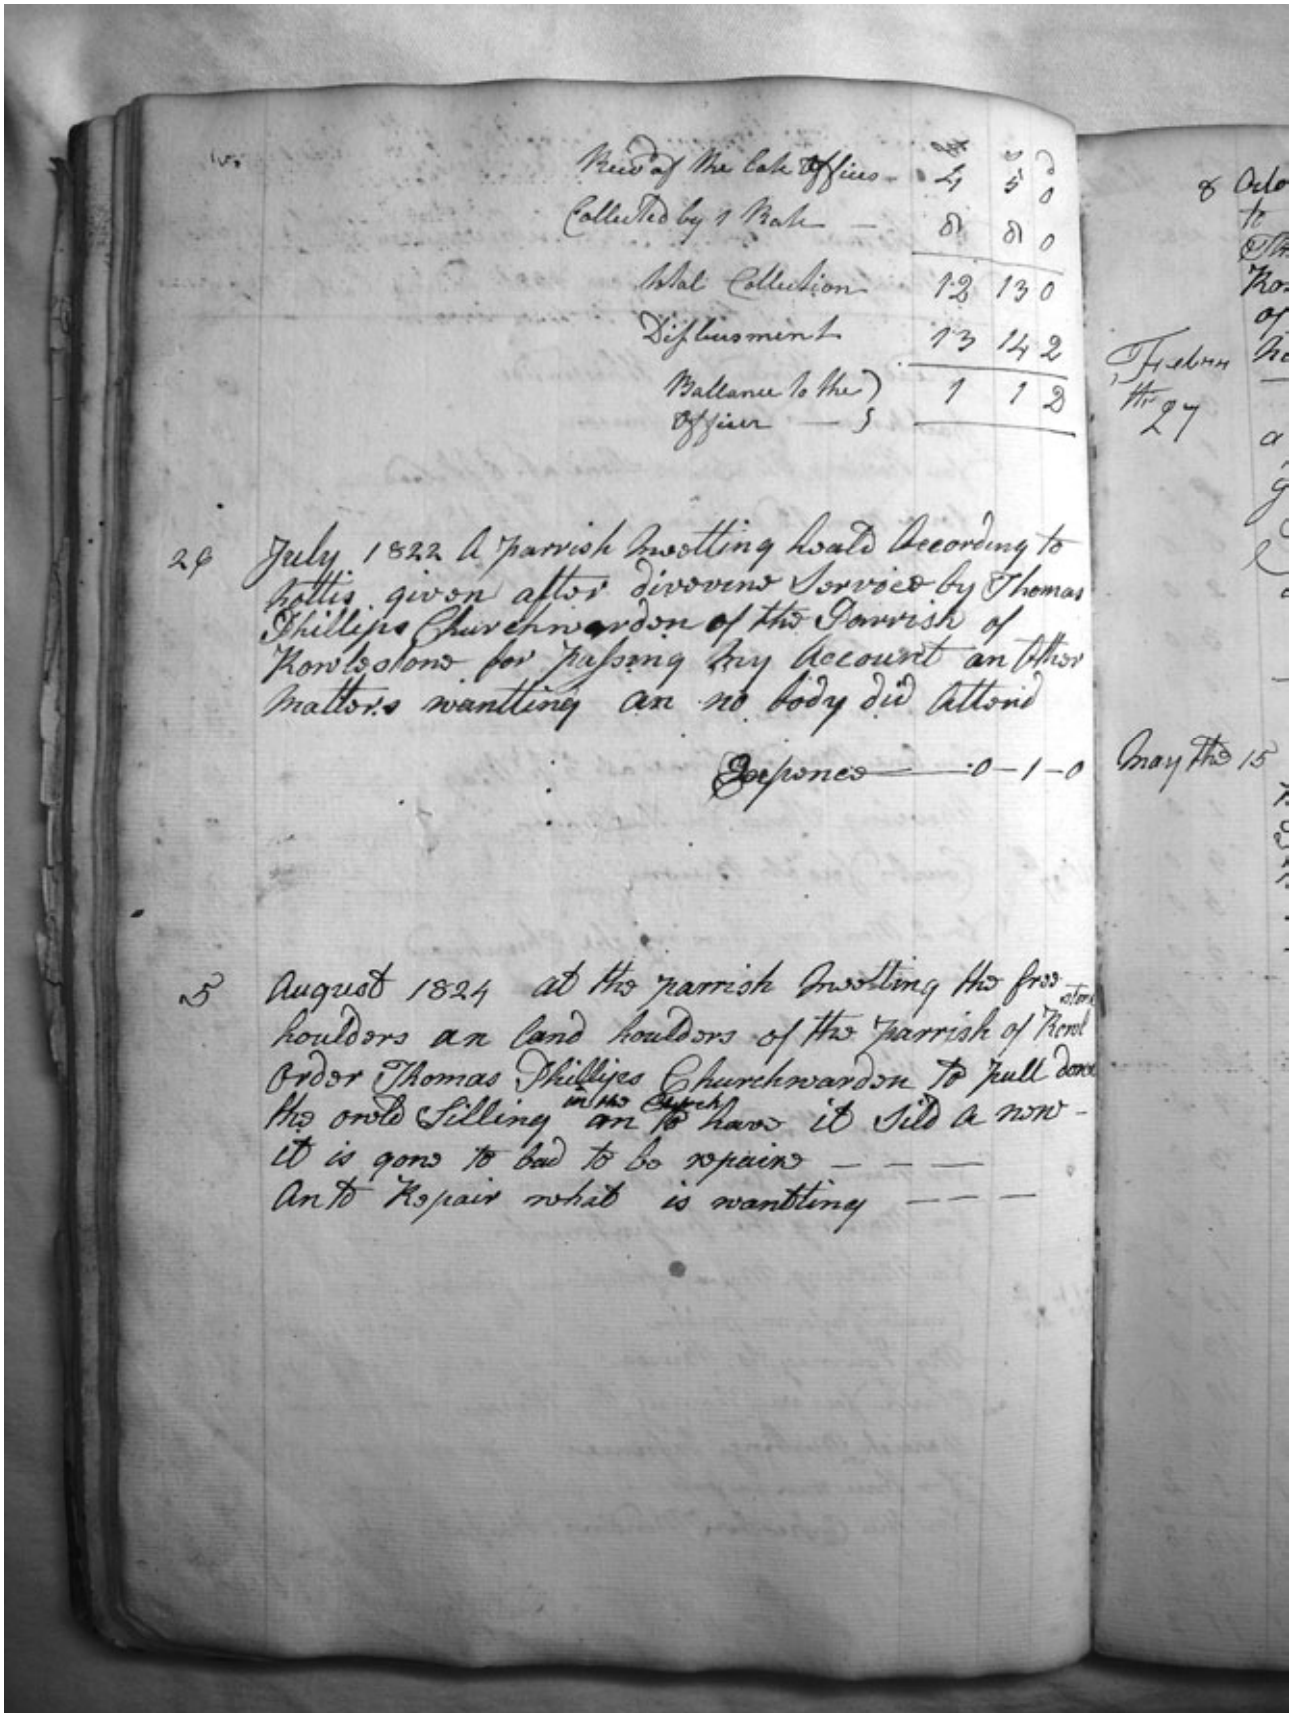 £ s d
Recd of the late Officer - 4 5 0
Collected by 1 Rate - 8 8 0
total Collection 12 13 0
Disbusment 13 14 2
Ballance to the } 1 1 2
Officer — }
July 1822 A parrish Meetting heald According to
nottis given after divevine Service by Thomas
Phillips Churchwarden of the Parrish of
Rowlestone for passing my Account an Other
matters wantting an no body did Attend
Expence — 0 – 1 – 0
5 August 1824 at the parrish Meetting the free
houlders an land houlders of the parrish of Rowlstone
Order Thomas Phillips Churchwarden to pull down
the owld Silling in the Church an to have it Sild a new -
it is gone to bad to be repaire — — —
An to Repair what is wantting — — —
8
to
of
Febry
the 27
a
May the 15